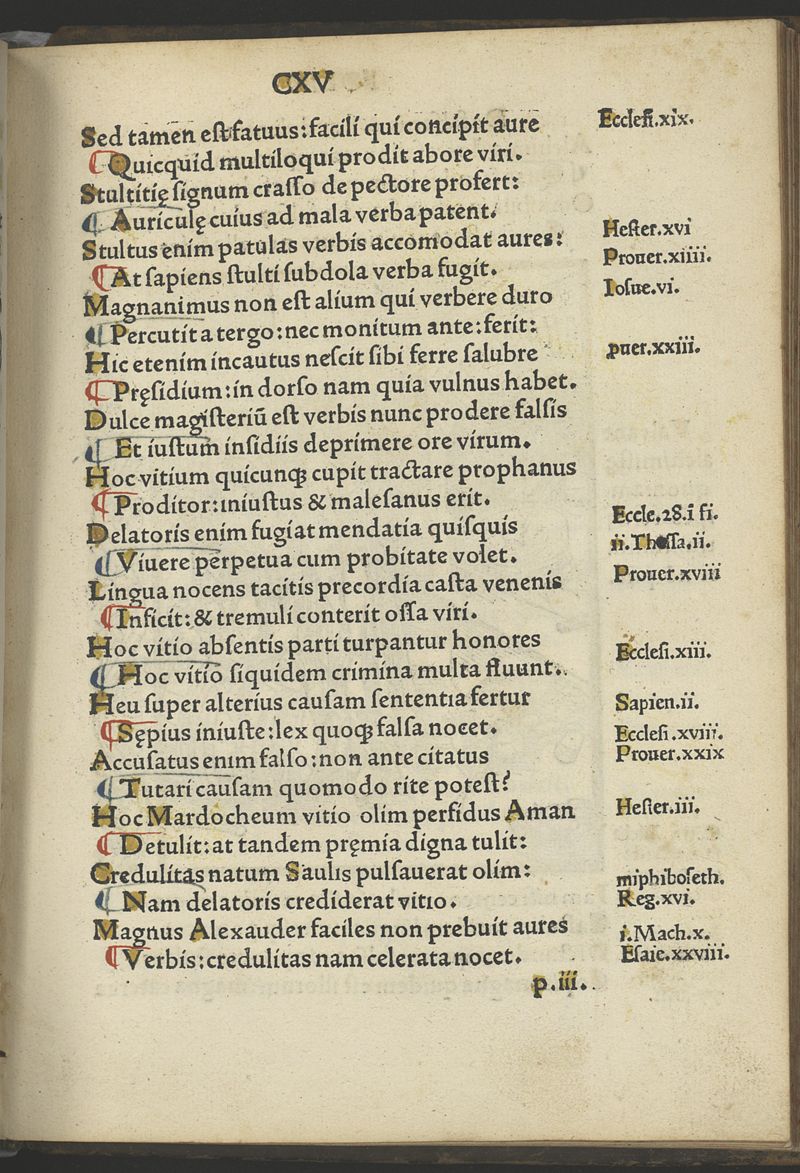 CXV
Sed tamen est fatuus: facili qui concipit aure
Ecclesi.xix.
¶ Quicquid multiloqui prodit ab ore viri.
Stultitię signum crasso de pectore profert:
¶ Auriculę cuius ad mala verba patent.
Stultus enim patulas verbis accomodat aures:
Hester.xvi
¶ At sapiens stulti subdola verba fugit.
Prouer.xiiii.
Magnanimus non est alium qui verbere duro
Iosue.vi.
¶ Percutit a tergo: nec monitum ante: ferit:
Hic etenim incautus nescit sibi ferre salubre
ꝓuer.xxiii.
¶ Pręsidium: in dorso nam quia vulnus habet.
Dulce magisteriū est verbis nunc prodere falsis
¶ Et iustum insidiis deprimere ore virum.
Hoc vitium quicunqꝫ cupit tractare prophanus
¶ Proditor: iniustus & malesanus erit.
Delatoris enim fugiat mendatia quisquis
Eccle.28.i fi.
¶ Viuere perpetua cum probitate volet.
ii.Thessa.ii.
Lingua nocens tacitis precordia casta venenis
Prouer.xviii
¶ Inficit: & tremuli conterit ossa viri.
Hoc vitio absentis parti turpantur honores
Ecclesi.xiii.
¶ Hoc vitio siquidem crimina multa fluunt.
Heu super alterius causam sententia fertur
Sapien.ii.
¶ Sępius iniuste: lex quoqꝫ falsa nocet.
Ecclesi.xviii.
Accusatus enim falso: non ante citatus
Prouer.xxix
¶ Tutari causam quomodo rite potest?
Hoc Mardocheum vitio olim perfidus Aman
Hester.iii.
¶ Detulit: at tandem pręmia digna tulit:
Credulitas natum Saulis pulsauerat olim:
miphiboseth.
¶ Nam delatoris crediderat vitio.
Reg.xvi.
Magnus Alexauder faciles non prebuit aures
i.Mach.x.
¶ Verbis: credulitas nam celerata nocet.
Esaie.xxviii.
p.iii.